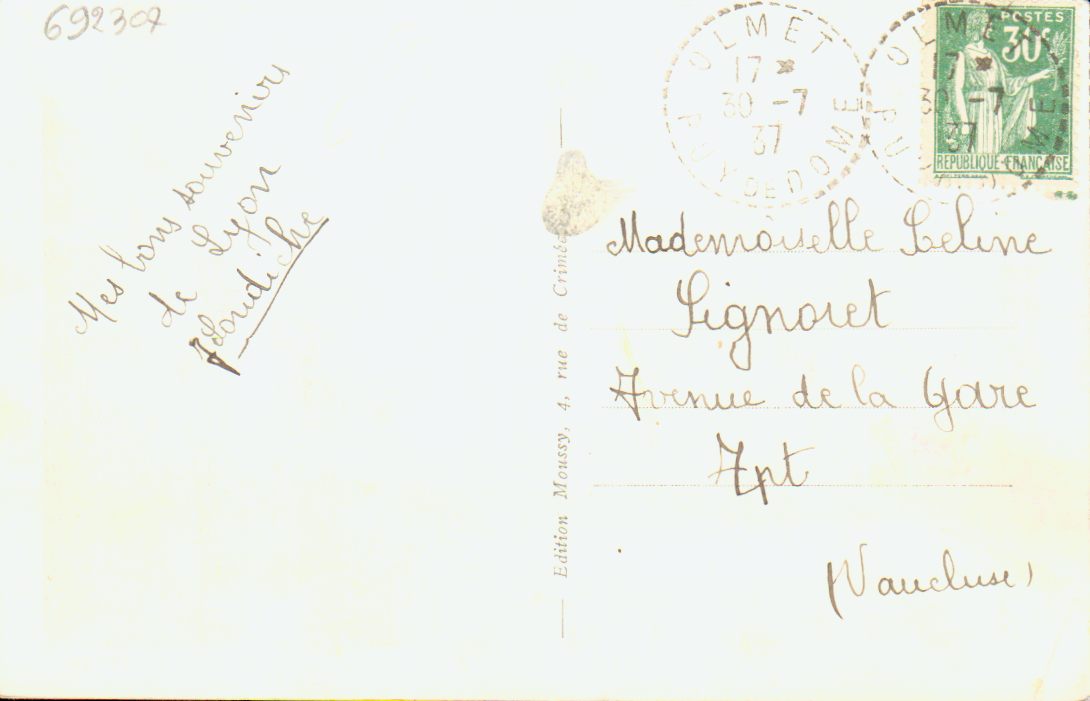 692307
Mes bons souvenirs
de Lyon
OLMET
17 *
30 -7
37
PUY DE DOME
OLMET
17 *
30 -7
37
PUY DE DOME
POSTES
30c
REPUBLIQUE FRANÇAISE
Edition Moussy, 4, rue de Crimée
Mademoiselle Celine
Signoret
Avenue de la Gare
Apt
(Vaucluse)